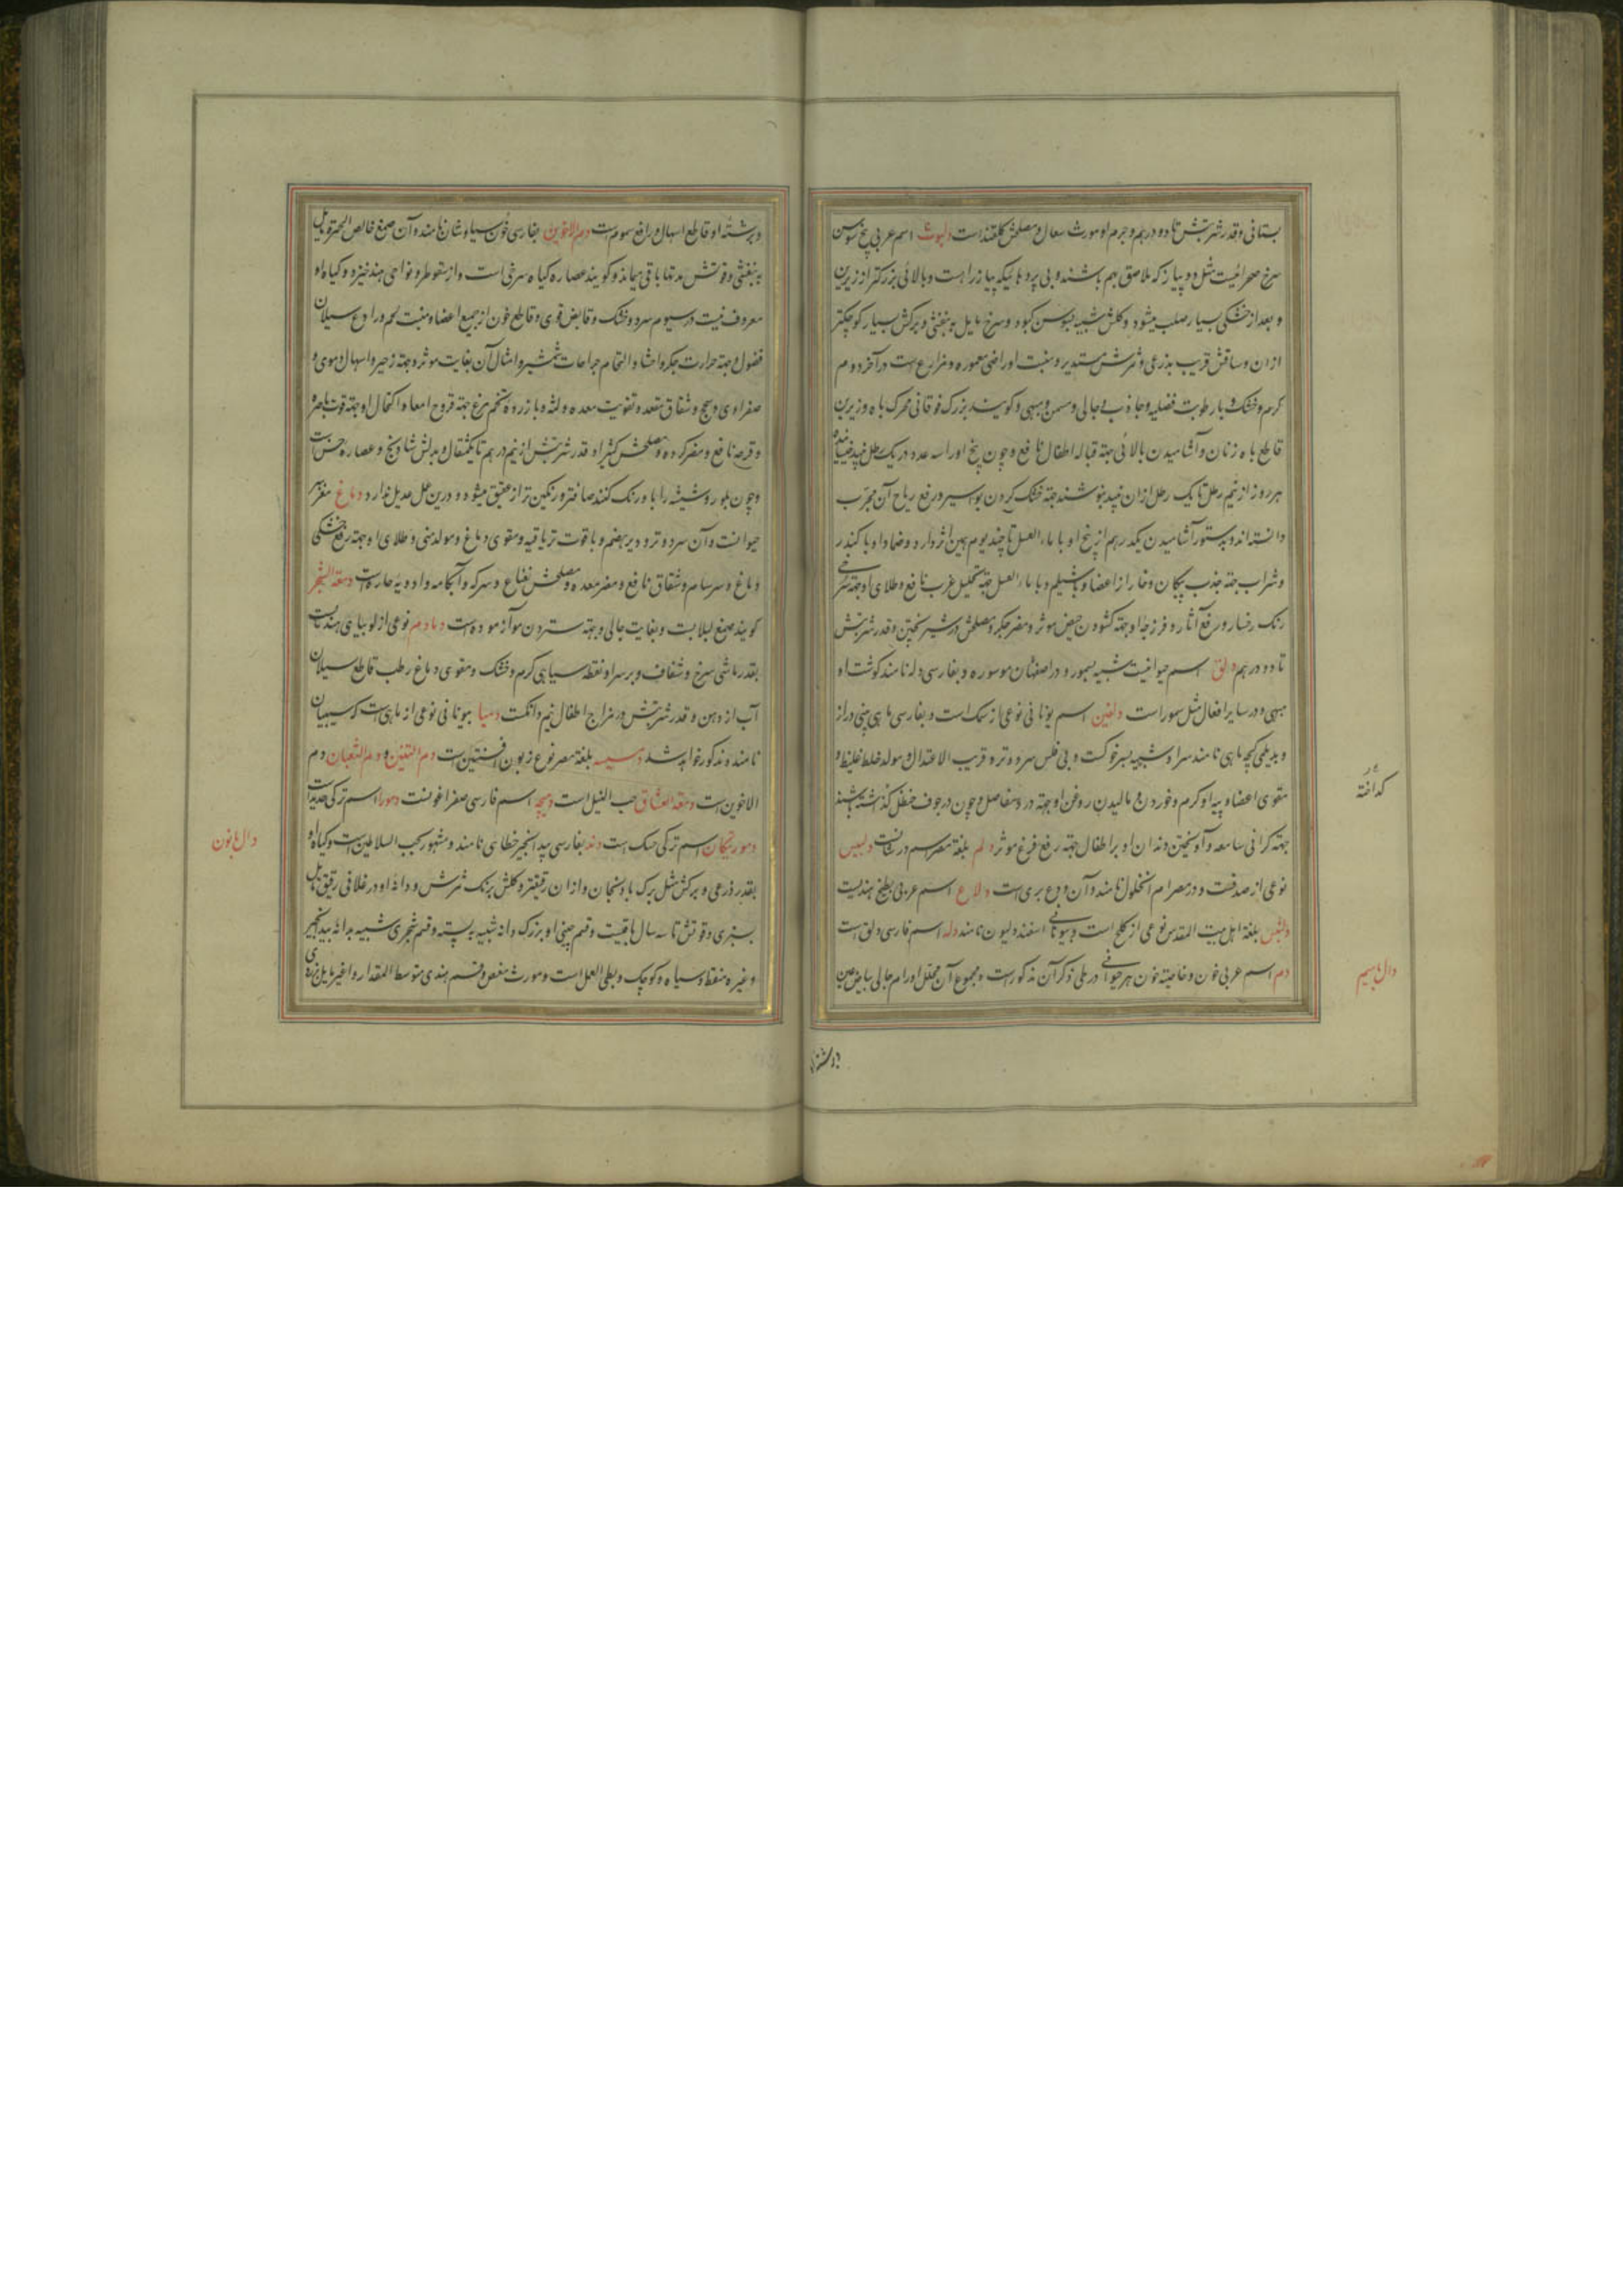 بستانی و قدر شربتش تا دو درهم و جرم او مورث سعال و مصلحش گلقند است دلبوث اسم عربی بیخ سوسن
سرخ صحرائیست مثل دو پیاز که ملاصق بهم باشند و بی پرده هائیکه پیاز راست و بالائی بزرکتر از زیرین
و بعد از خشکی بسیار صلب میشود و کلش شبیه بسوسن کبود و سرخ مایل به بنفشی و برکش بسیار کوچکتر
ازان و ساقش قریب بذرعی و ثمرش مستدیر و منبت او راضی معموره و مزارع است در آخر دوم
کرم و خشک و با رطوبت فضلیه و جاذب و جالی و مسمن و مبهی و کویند بزرک فوقانی محرک باه و زیرین
قاطع باه زنان و آشامیدن بالائی جهته قباله اطفال نافع و چون بیخ او را سه عدد در یک رطل نبید
هر روز از نیم رطل تا یک رطل ازان نبید بنوشند جهته خشک کردن بواسیر و رفع ریاح آن مجرب
دانسته اند و بدستور آشامیدن یکدرهم از بیخ او با ماء العسل تا چند یوم همین اثر دارد و ضماد او با کندر
و شراب جهته جذب پیکان و خار از اعضا و با شیلم و با ماء العسل جهته تحلیل غرب نافع و طلای او جهته سرخی
رنک رخسار و رفع آثار و فرزجه او جهته کشودن حیض موثر و مضر جکر و مصلحش در شیر پختن و قدر شربتش
تا دو درهم دلق اسم حیوانیست شبیه بسمور و در اصفهان موسوره و بفارسی دله نامند کوشت او
مبهی و در سایر افعال مثل سمور است دلفین اسم یونانی نوعی از سمک است و بفارسی ماهی بینی دراز
و بدیلمی کچه ماهی نامند سر او شبیه بسر خوکست و بی فلس سرد و تر و قریب الاعتدال و مولد خلط غلیظ و
مقوی اعضا و پیه او کرم و خوردن و مالیدن روغن او جهته درد مفاصل و چون در جوف حنظل کذاشته باشند
جهته کرانی سامعه و آویختن دندان او بر اطفال جهته رفع فزع موثر دلم بلغة مصر اسم دلبیس
نوعی از صدفست و در مصر ام الخلول نامند و آن ودع بریست دلاع اسم عربی بطیخ هندیست
بلغة اهل بیت المقدس نوعی از کلخ است و بیونانی اسفندولیون نامند دله اسم فارسی دلق است
دم اسم عربی خون و خاصیته خون هر حیوانی در طی ذکر آن مذکور است و مجموع آن محلل اورام و جالی بیاض عین
کداخته
دال با میم
و برشته او قاطع اسهال و رافع سموم است دم الاخوین بفارسی خون سیاوشان نامند و آن صمغ خالص الحمرة مایل
به بنفشی و قوتش مدتها باقی میماند و کویند عصاره کیاه سرخی است و از سقوطره و نواحی هند خیزد و کیاه او
معروف نیست در سیوم سرد و خشک و قابض قوی و قاطع خون از جمیع اعضا و منبت لحم و رادع سیلان
فضول و جهته حرارت جکر و احشا و التحام جراحات شمشیر و امثال آن بغایت موثر و جهته زحیر و اسهال دموی و
صفراوی و سحج و شقاق مقعده و تقویت معده و لثه و با زرده تخم مرغ جهته قروح امعا و اکتحال او جهته قوت باصره
و قرحه نافع و مضر کرده و مصلحش کثیرا و قدر شربتش از نیم درهم تا یکمثقال و بدلش شادنج و عصاره
و چون بلور و شیشه را باو رنک کنند صافتر و رنکین تر از عقیق میشود و درین عمل عدیل ندارد دماغ مغز سر
حیوانست و آن سرد و تر و دیر هضم و با قوت تریاقیه و مقوی دماغ و مولد منی و طلای او جهته رفع خشکی
دماغ و سرسام و شقاق نافع و مضر معده و مصلحش نعناع و سرکه و آبکامه و ادویه حاره است دمعة الشجر
کویند صمغ لبلابست و بغایت جالی و جهته ستردن مو آزموده است دمادم نوعی از لوبیای هندیست
بقدر ماشی سرخ و شفاف و بر سر او نقطه سیاهی کرم و خشک و مقوی دماغ رطب قاطع سیلان
آب از دهن و قدر شربتش در مزاج اطفال نیم دانکست دمیا بیونانی نوعی از ماهی است که سیبیان
نامند و مذکور خواهد شد دمسیسه بلغة مصر نوع زبون افسنتین است دم التنین و دم الثعبان دم
الاخوین است دمعة العشاق حب النیل است دمچه اسم فارسی صفراغونست دمور اسم ترکی حدید است
دمور تیکان اسم ترکی حسک است دند بفارسی بیدانجیر خطائی نامند و مشهور بحب السلاطین است و کیاه او
بقدر ذرعی و برکش مثل برک بادنجان و ازان رقیقتر و کلش برنک ثمرش و دانه او در غلافی رقیق مایل
بسبزی و قوتش تا سه سال باقیست و قسم چینی او بزرک دانه شبیه به پسته و قسم شجری شبیه بدانه بیدانجیر
و غیره منقط و سیاه و کوچک و بطی العمل است و مورث مغص و قسم هندی متوسط المقدار و اغبر مایل بزردی
دال با نون
و برشته او